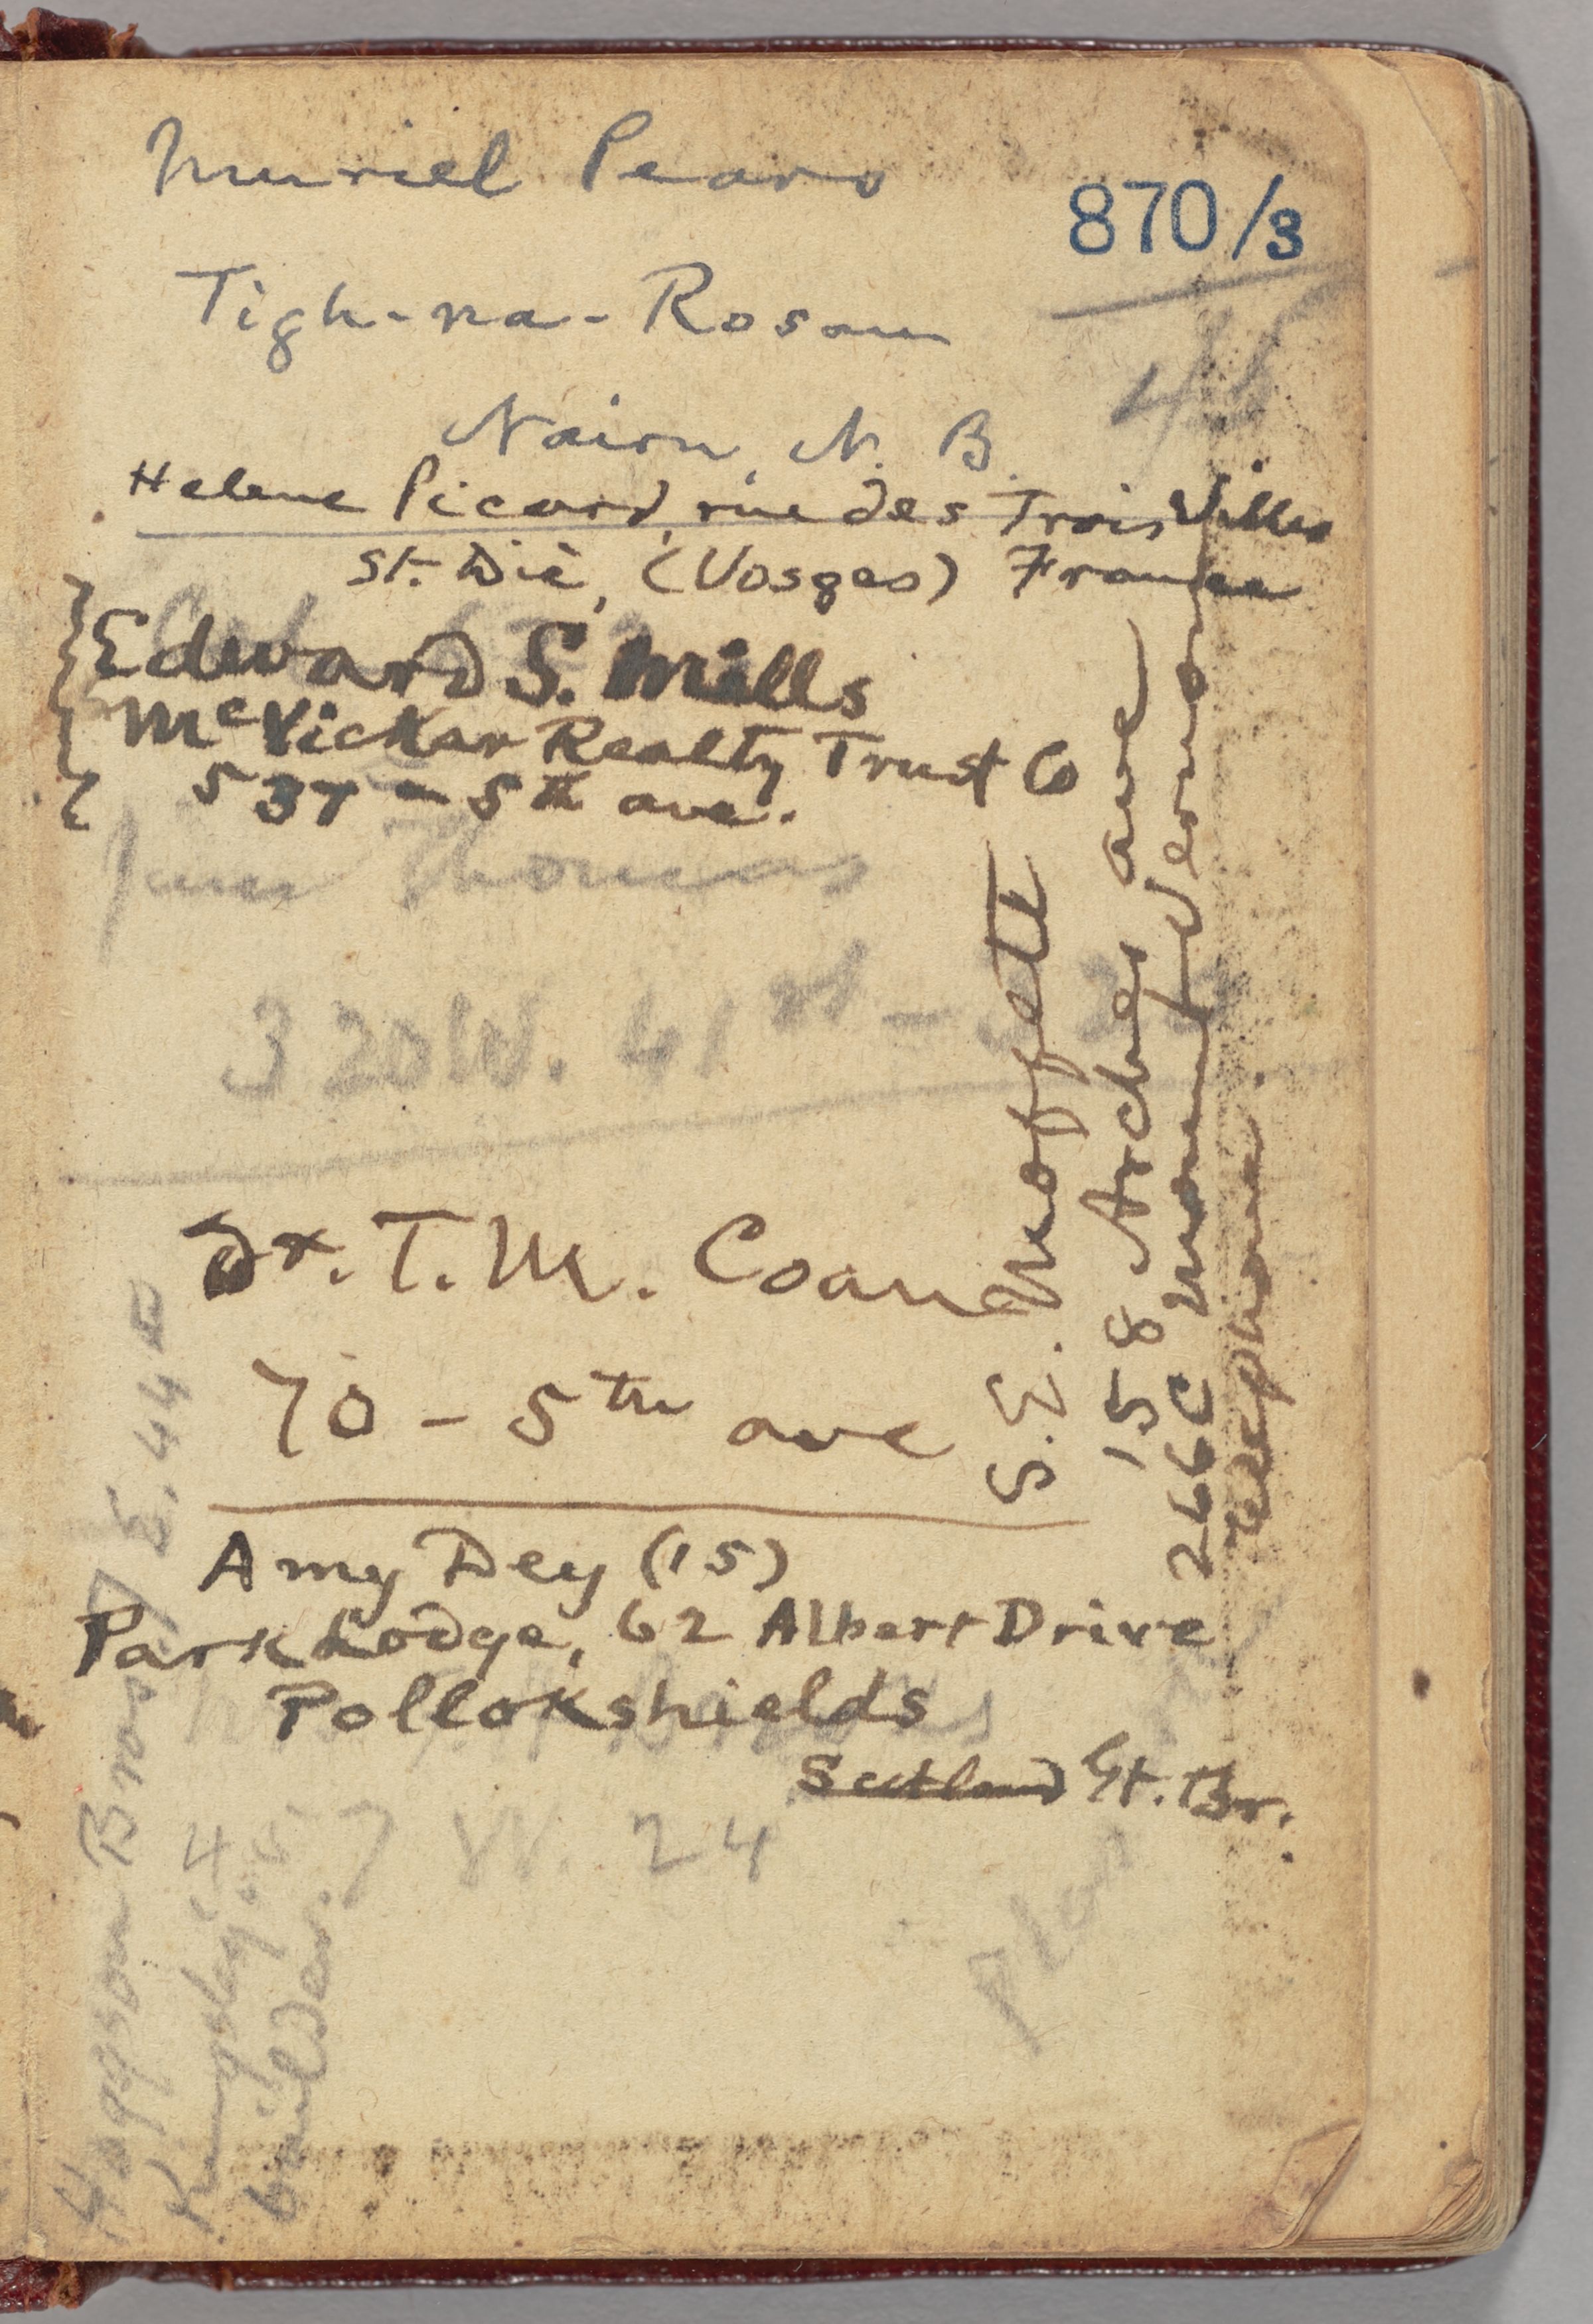 Muriel Pears
870/3
Tigh-na-Rosan
46
Nairn, N. B.
Helene Picard, rue des Trois Villes
St. Dié, (Vosges) France
Edward S. Mills
McVickar Realty Trust Co
537 - 5th ave.
Thomas
320 W. 41st -
Dr. T. M. Coan
70 - 5th ave
S. E. Moffett
158 Archer ave
Mount Vernon
266C
telephone.
Amy Dey (15)
Park Lodge, 62 Albert Drive
Pollokshields
Scotland Gt. Br.
7 W. 24
Plan
Hoggson Bros 7 E. 44
Kingsley 4
builder.